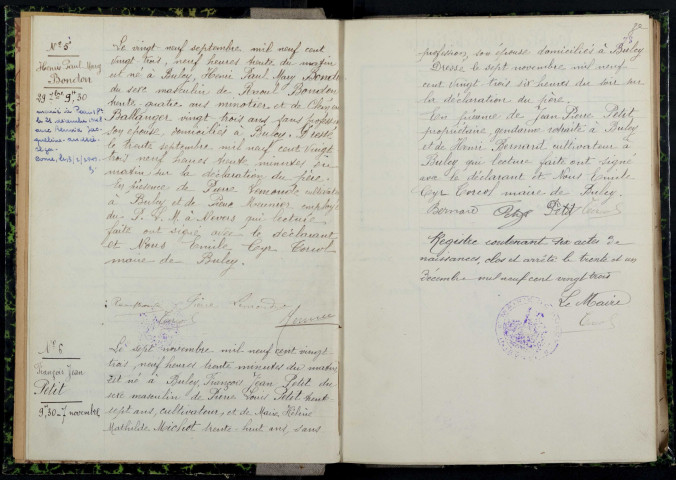 N° 5
Henri Paul Mary
Bondon
29 7bre 9h30
Le vingt neuf septembre mil neuf cent
vingt trois, neuf heures trente du matin
est né à Bulcy, Henri Paul Mary Bondon
du sexe masculin de Bondon
trente quatre ans minotier, et de
Ballanger vingt trois ans sans profession
son épouse domiciliés à Bulcy. Dressé
le trente septembre mil neuf cent vingt
trois neuf heures trente minutes du
matin sur la déclaration du père.
En présence de Pierre cultivateur
à Bulcy et de Pierre Meunier employé
du P. L. M. à Nevers qui lecture
faite ont signé avec le déclarant
et Nous Emile Cyr Corcol
maire de Bulcy.
N° 6
François Jean
Petit
9h30 - 7 novembre
Le sept novembre mil neuf cent vingt
trois, neuf heures trente minutes du matin
est né à Bulcy, François Jean Petit du
sexe masculin de Pierre Louis Petit trente
sept ans, cultivateur, et de Marie Hélène
Mathilde Michot trente huit ans, sans
profession, son épouse domiciliés à Bulcy
Dressé le sept novembre mil neuf
cent vingt trois six heures du soir sur
la déclaration du père.
En présence de Jean Pierre Petit
propriétaire, gendarme retraité à Bulcy
et de Henri Bernard cultivateur à
Bulcy qui lecture faite ont signé
avec le déclarant et Nous Emile
Cyr Corcol maire de Bulcy.
Bernard Petit Petit
Registre contenant six actes de
naissances, clos et arrêté le trente et un
Décembre mil neuf cent vingt trois
Le Maire